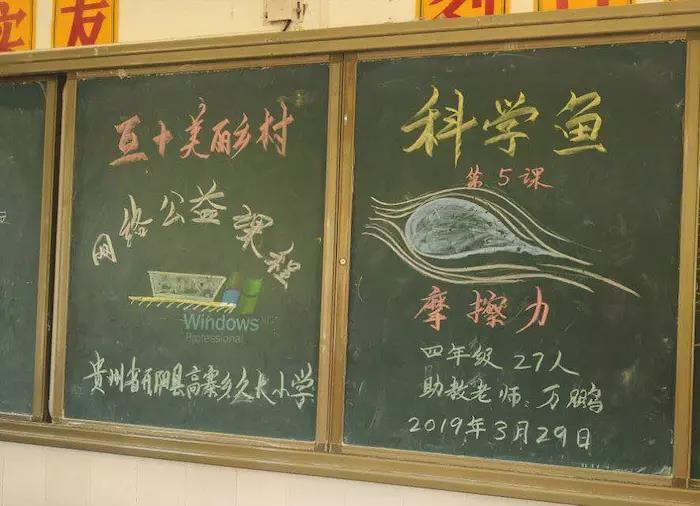 实
友
互+美丽乡村
网络公益课程
Windows
Professional
贵州省开阳县高寨乡久长小学
科学鱼
第5课
摩擦力
四年级 27人
助教老师:万鹏
2019年3月29日